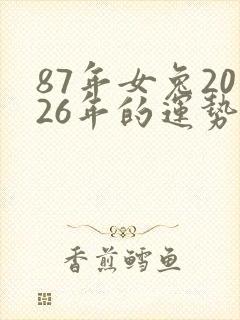 87年女兔20
26年的運勢
香煎鳕鱼